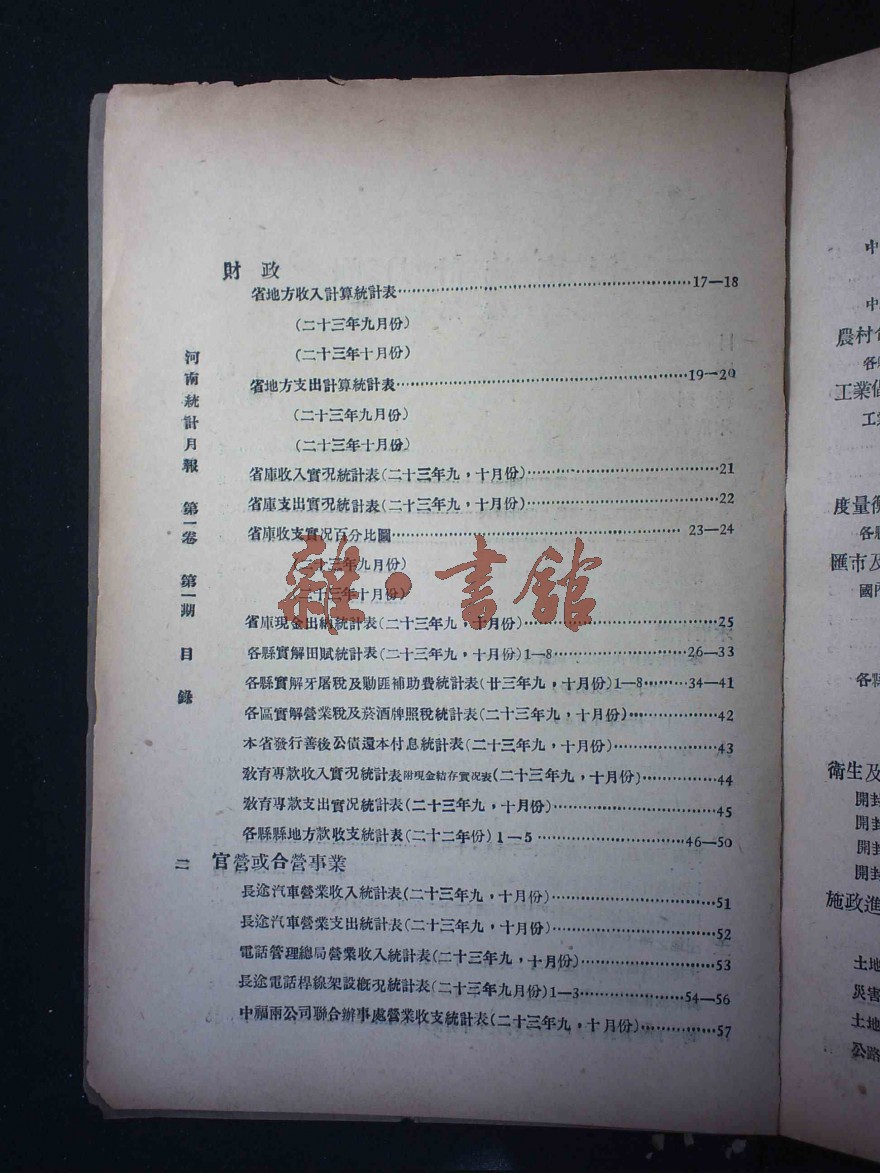 財政
省地方收入計算統計表……17—18
(二十三年九月份)
(二十三年十月份)
省地方支出計算統計表……19—20
(二十三年九月份)
(二十三年十月份)
省庫收入實況統計表(二十三年九，十月份)……21
省庫支出實況統計表(二十三年九，十月份)……22
省庫收支實况百分比圖……23—24
(二十三年九月份)
(二十三年十月份)
省庫現金出納統計表(二十三年九，十月份)……25
各縣實解田賦統計表(二十三年九，十月份)1—8……26—33
各縣實解牙屠稅及勦匪補助費統計表(廿三年九，十月份)1—8……34—41
各區實解營業稅及菸酒牌照稅統計表(二十三年九，十月份)……42
本省發行善後公債還本付息統計表(二十三年九，十月份)……43
敎育專款收入實況統計表附現金結存實況表(二十三年九，十月份)……44
敎育專款支出實況統計表(二十三年九，十月份)……45
各縣縣地方款收支統計表(二十二年份)1—5……46—50
官營或合營事業
長途汽車營業收入統計表(二十三年九，十月份)……51
長途汽車營業支出統計表(二十三年九，十月份)……52
電話管理總局營業收入統計表(二十三年九，十月份)……53
長途電話桿線架設概況統計表(二十三年九月份)1—3……54—56
中福兩公司聯合辦事處營業收支統計表(二十三年九，十月份)……57
河南統計月報 第一卷 第一期 目錄
二
雜·書館
中
中
農村
各縣
工業
工業
度量衡
各縣
匯市及
國內
各縣
衛生及
開封
開封
開封
開封
施政進
土地
災害
土地
公路